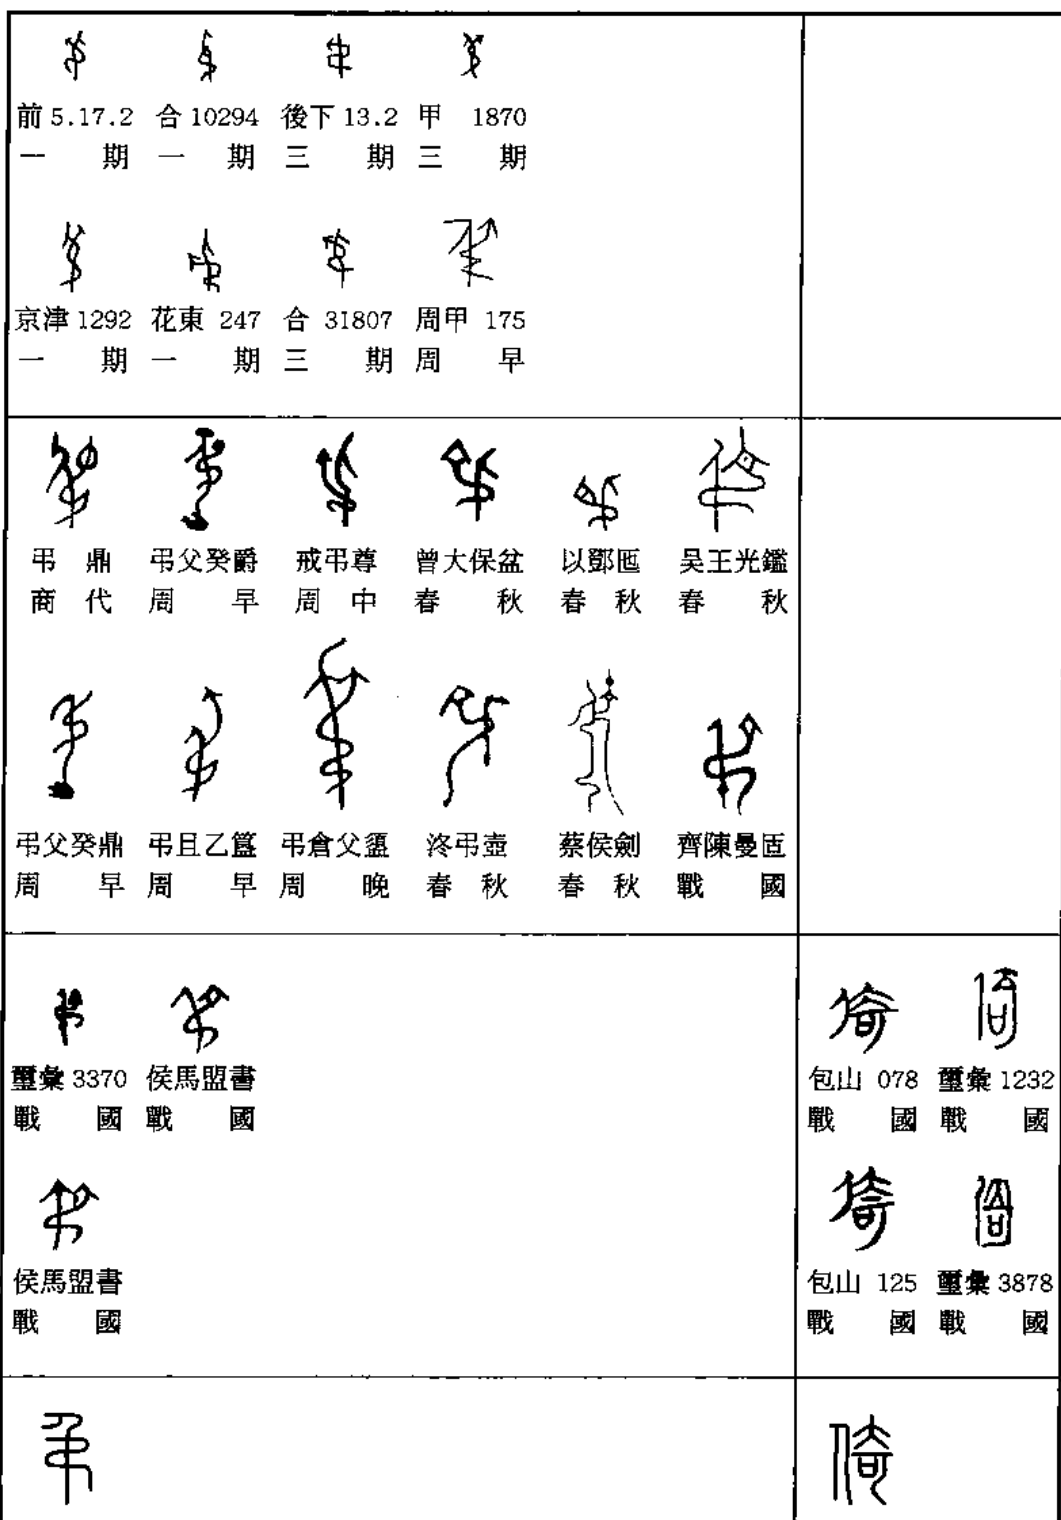 前5.17.2 合10294 後下13.2 甲 1870
一期 一期 三期 三期
京津1292 花東 247 合 31807 周甲 175
一期 一期 三期 周早
弔鼎 弔父癸爵 戒弔尊 曾大保盆 以鄧匜 吳王光鑑
商代 周早 周中 春秋 春秋 春秋
弔父癸鼎 弔且乙簋 弔倉父盨 洚弔壺 蔡侯劍 齊陳曼匠
周早 周早 周晚 春秋 春秋 戰國
璽彙3370 侯馬盟書
戰國 戰國
包山 078 璽彙1232
戰國 戰國
侯馬盟書
戰國
包山 125 璽彙3878
戰國 戰國
弔
倚